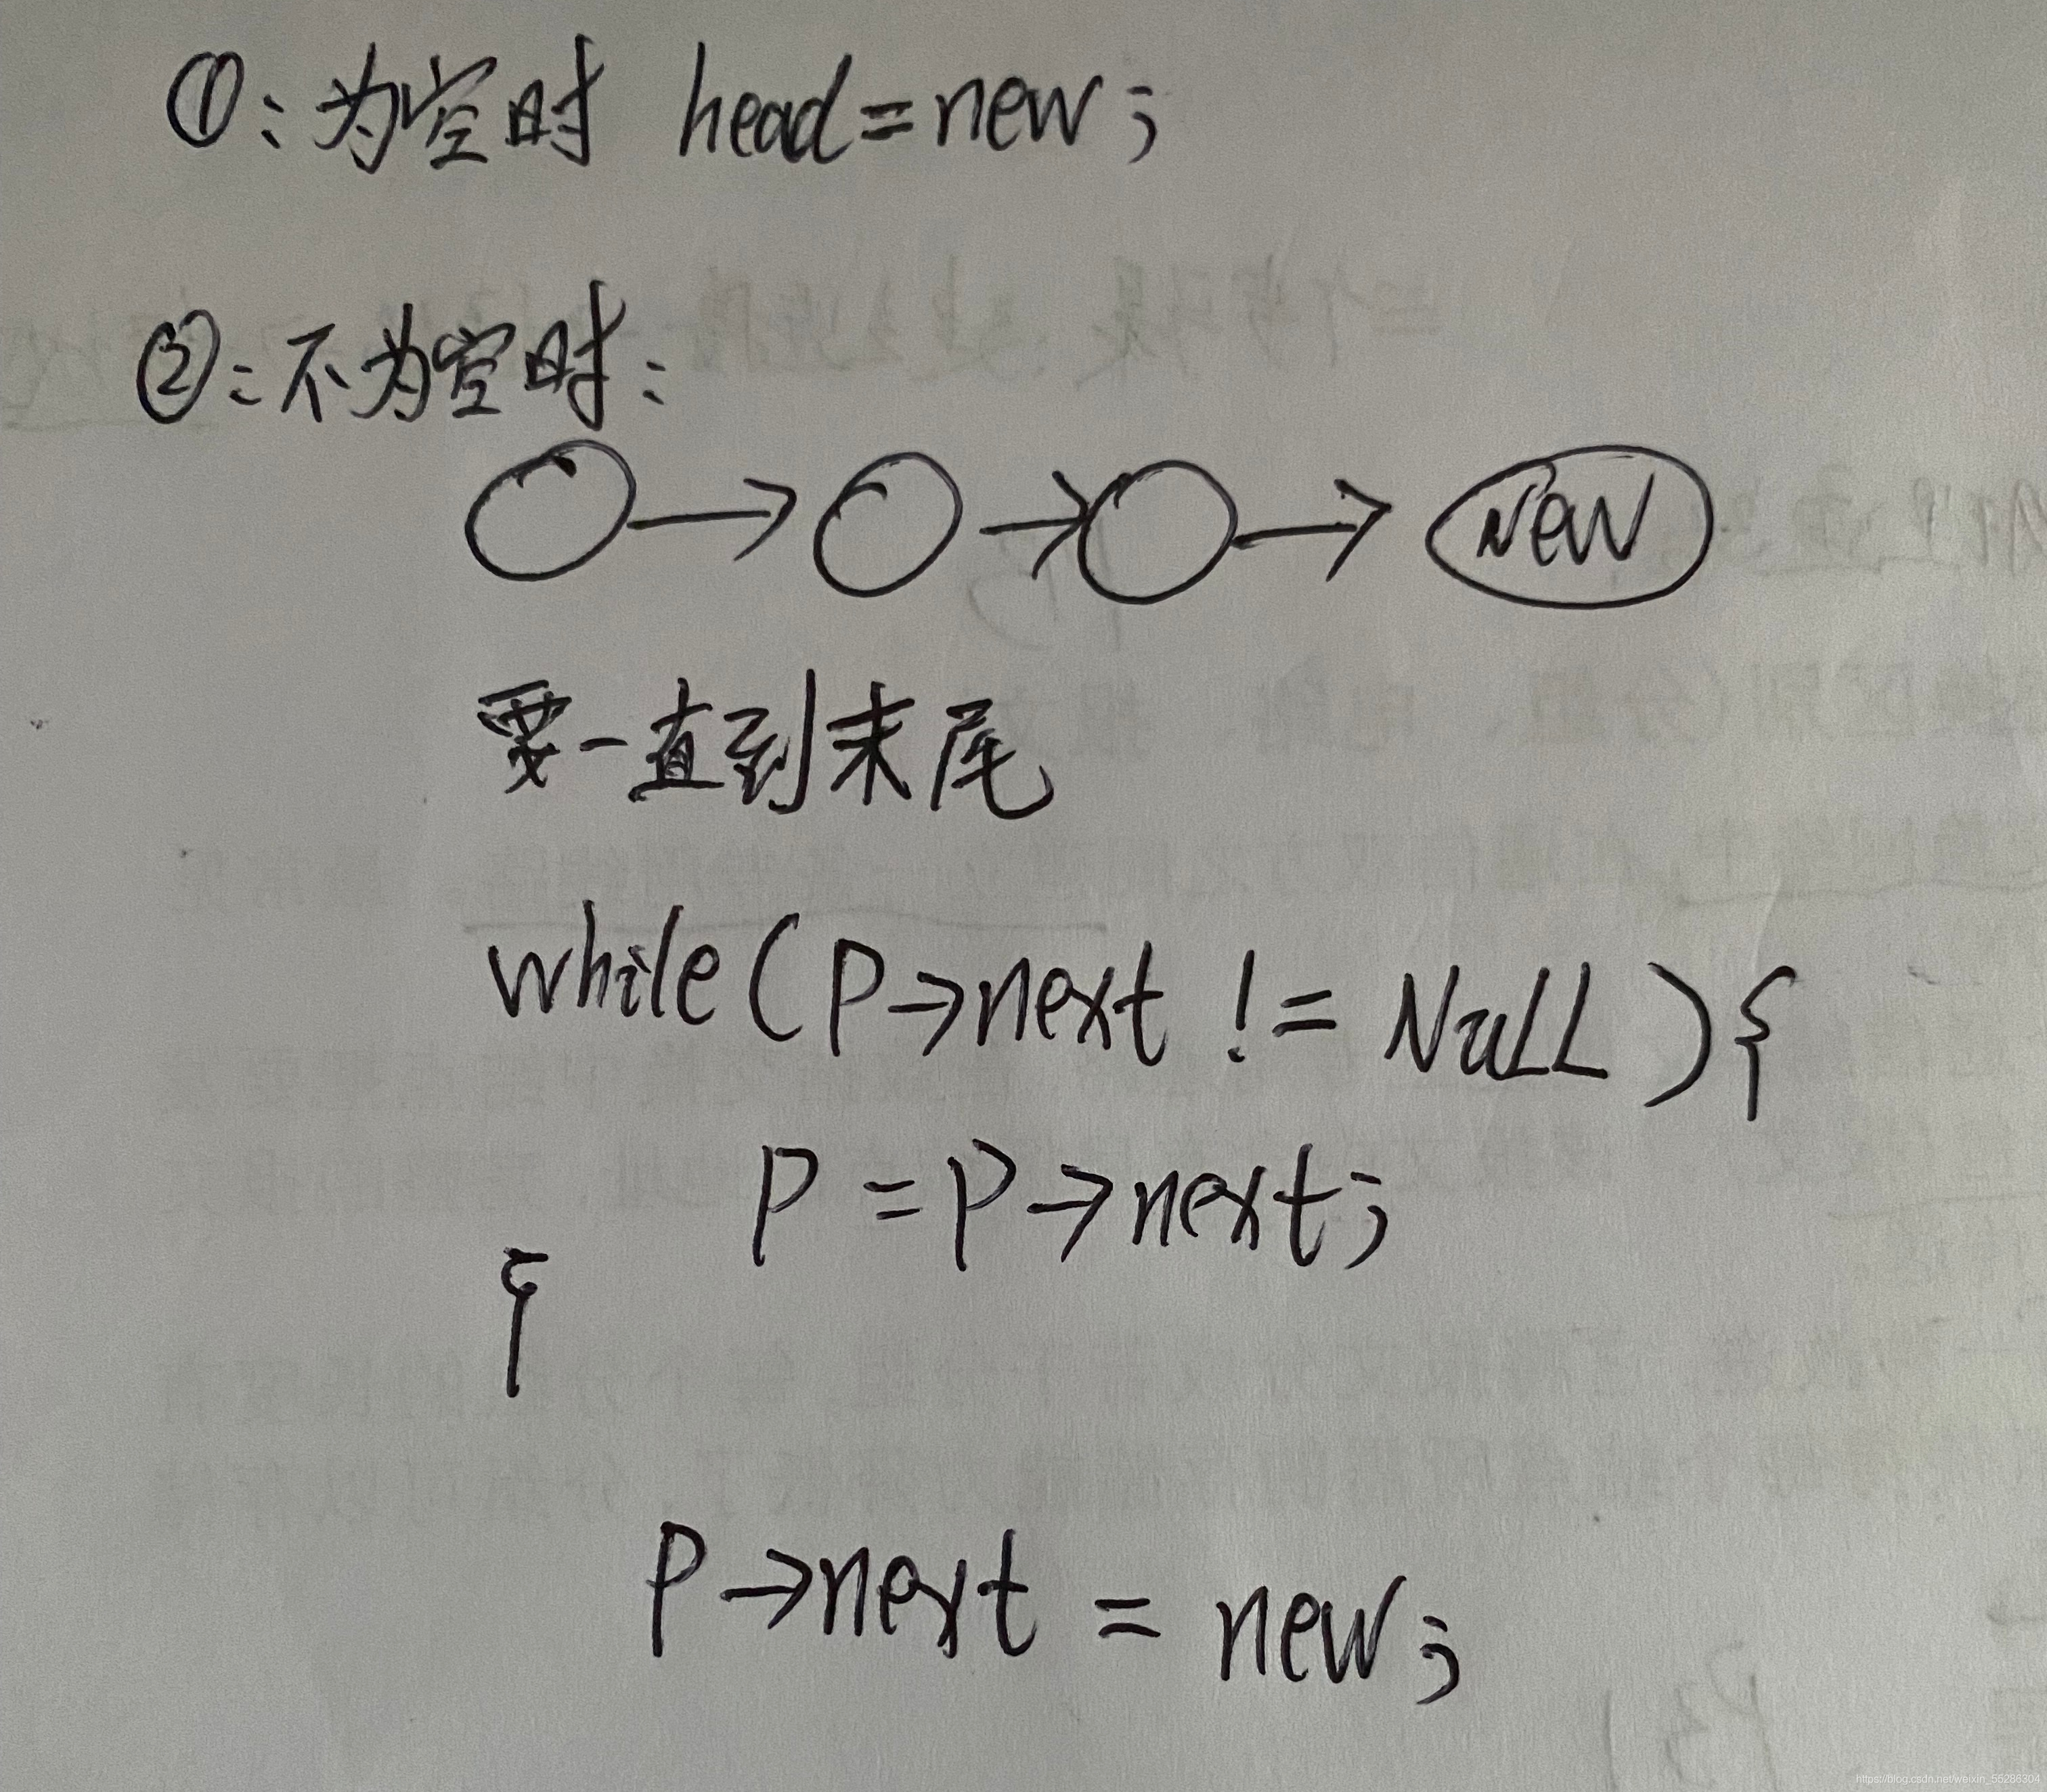 ①:为空时 head=new;
②:不为空时:
New
要一直到末尾
while(P→next != NuLL){
P=P→next;
{
P→next = new;
https://blog.csdn.net/weixin_55286304